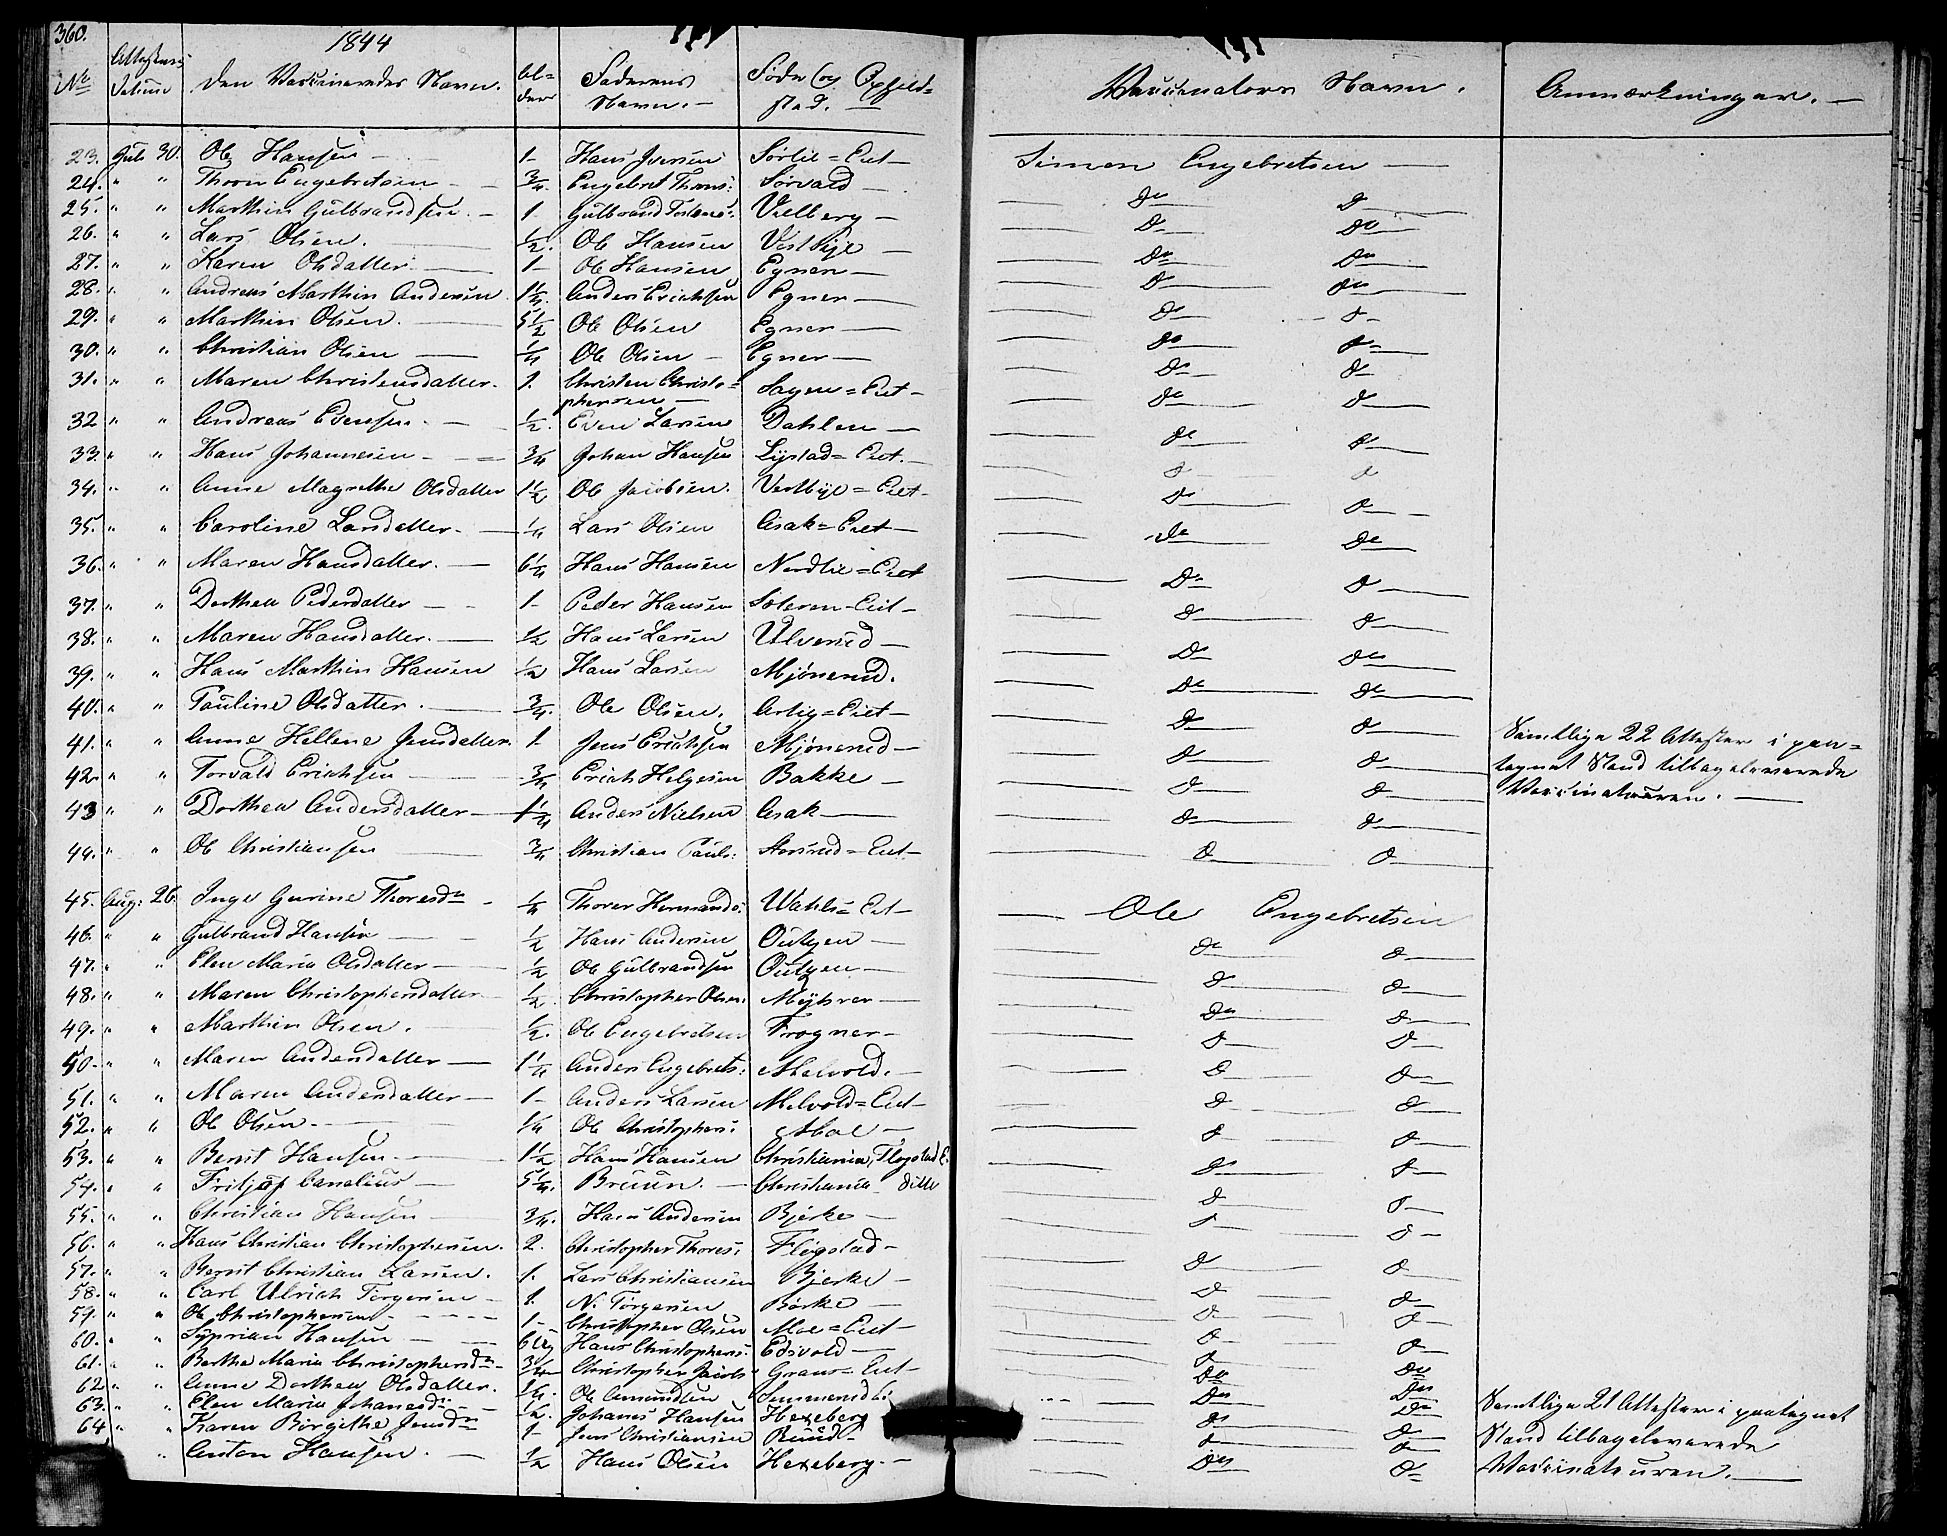 360.
1844
No Attestens Datum Den Vaccineredes Navn. Al-der Faderens Navn. Føde og Opholds=sted. Vaccinateurs Navn. Anmærkninger.
23. Juli 30. Ole Hansen 1 Hans Iversen Sørlie=Eiet Simen Engebretsen
24. " " Thorn Engebretsen 3/4. Engebret Thorns: Sørvald do do
25. " " Marthin Gulbrandsen 1 Gulbrand Vilberg do do
26. " " Lars Olsen. 1/2. Ole Hansen Vestbye do do
27. " " Karen Olsdatter 1 Ole Hansen Egner do do
28. " " Andreas Marthin Andersen 1 1/4. Anders Erichsen Egner do do
29. " " Marthin Olsen. 5 1/2 Ole Olsen Egner do do
30. " " Christian Olsen 1/4 Ole Olsen Egner do do
31. " " Maren Christensdatter. 1. Christen Christo=phersen Sagen=Eiet do do
32 " " Andreas Evensen. 1/2. Even Larsen Dahlen do do
33. " " Hans Johannesen 3/4 Johan Hansen Lystad=Eiet. do do
34. " " Anne Magrethe Olsdatter 1 1/2 Ole Jacobsen. Vestbye=Eiet do do
35. " " Caroline Larsdatter. 1/4 Lars Olsen Asak=Eiet do do
36. " " Maren Hansdatter. 6 1/4 Hans Hansen Nordlie=Eiet do do
37. " " Dorthea Pedersdatter 1 Peder Hansen Eiet do do
38. " " Maren Hansdatter. 1/2 Hans Larsen Ulverud do do
39. " " Hans Marthin Hansen 1/2 Hans Larsen Mjønerud. do do
40. " " Pauline Olsdatter. 3/4. Ole Olsen. Arlig=Eiet do do
41. " " Anne Hellene Jensdatter. 1 Jens Erichsen Mjønerud do do Samtlige 22 Attester i paa=
42. " " Torvald Erichsen 3/4 Erich Helgesen Bakke do do tegnet Stand tilbageleverede
43 " " Dorthea Andersdatter 1 1/4 Anders Nielsen Asak do do Vaccinateuren.
44. " " Ole Christiansen 3/4 Christian Pauls: Eiet do do
45. Aug. 26. Inge Gurine Thoresdr 1/4 Thorer Hermands: Wahls=Eiet Ole Engebretsen
46. " " Gulbrand Hansen 1/2 Hans Andersen Outgen do do
47. " " Elen Maria Olsdatter 1/2 Ole Gulbrandsen Outgen do do
48. " " Maren Christophersdatter 1/2. Christopher Olsen: Myhrer do do
49. " " Marthin Olsen. 1/2. Ole Engebretsen Frogner do do
50. " " Maren Andersdatter 1 1/4 Anders Engebrets: Melvold. do do
51. " " Maren Andersdatter 1 Anders Larsen Melvold=Eiet do do
52. " " Ole Olsen. 1/4 Ole Christophers: do do
53. " " Bernt Hansen 1 1/2 Hans Hansen Christiania, Flogstad E. do do
54. " " Fritjof 5 1/4. Bruun. Christiania ditto do do
55. " " Christian Hansen 3/4. Hans Andersen Bjerke do do
56. " " Hans Christian Christophersen. 2. Christopher Thores: Flogstad do do
57. " " Bernt Christian Larsen. 1. Lars Christiansen Bjerke do do
58. " " Carl Ulrich Torgersen 1. N. Torgersen Børke do do
59. " " Ole Christophersen 1 Christopher Olsen Moe=Eiet do do
60. " " Syprian Hansen Hans Christophers: Edsvold do do
61. " " Berthe Maria Christophersdr 3/4 Christopher Jacobs: Eiet do do
62 " " Anne Dorthea Olsdatter. 1/4. Ole Amundsen do do
63. " " Elen Maria Johanesdr 1/2. Johanes Hansen Hexeberg do do Samtlige 21 Attester i paategnet
64 " " Karen Birgithe Jensdr 1 Jens Christiansen Ruud do do Stand tilbageleverede
" Anton Hansen. 1/2 Hans Olsen Hexeberg. do do Vaccinateuren.